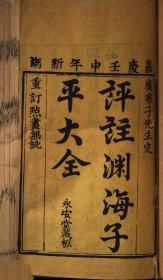 嘉慶壬申年新鐫
廣寒子先生定
評註渊海子
平大全
重訂點畫無訛
永安堂藏板